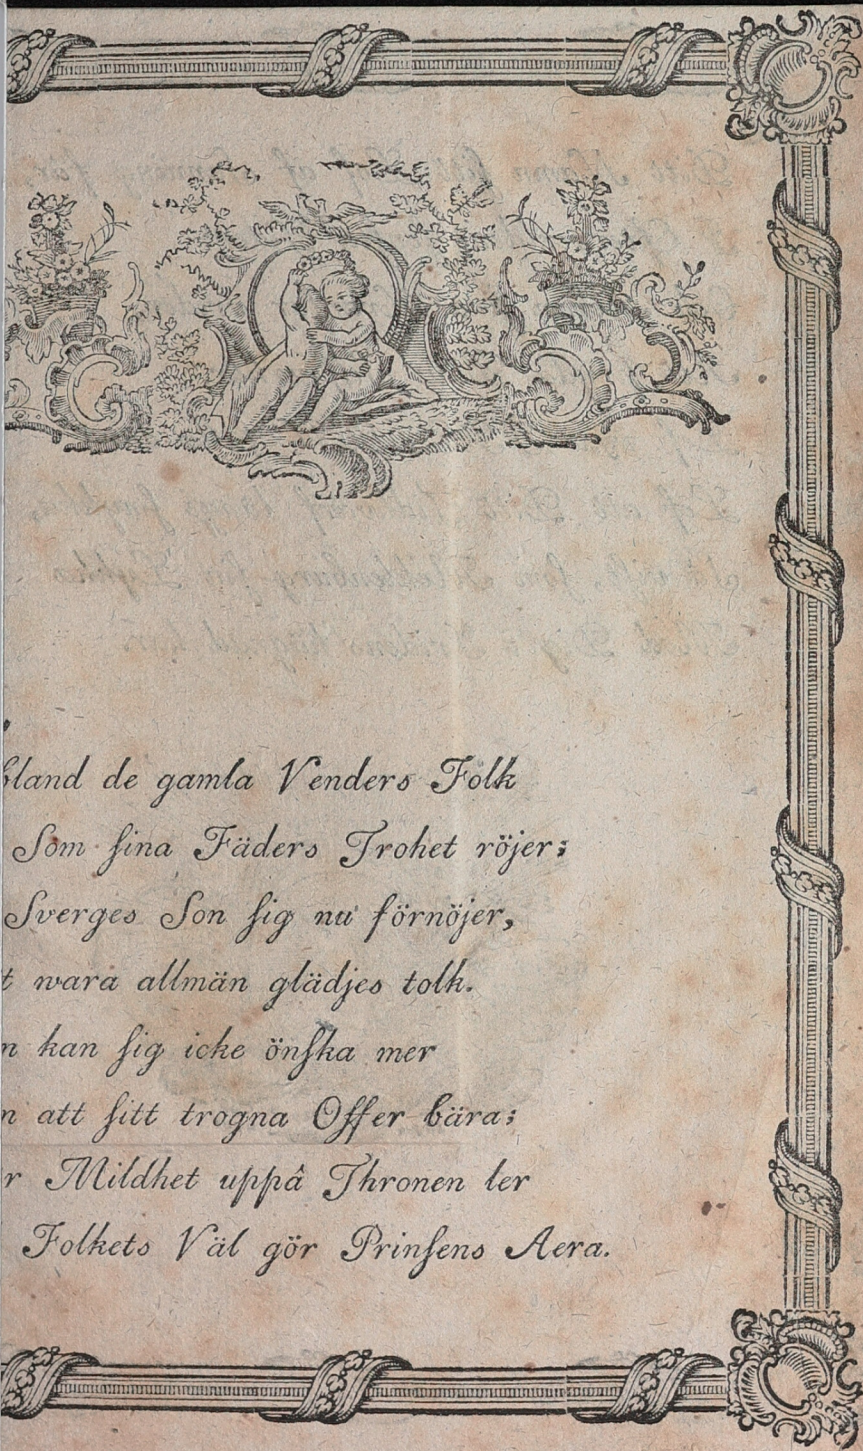 bland de gamla Venders Folk
Som ſina Fäders Trohet röjer;
Sverges Son ſig nu förnöjer,
t wara allmän glädjes tolk.
n kan ſig icke önſka mer
n att ſitt trogna Offer bära;
r Mildhet uppå Thronen ler
Folkets Väl gör Prinſens Aera.